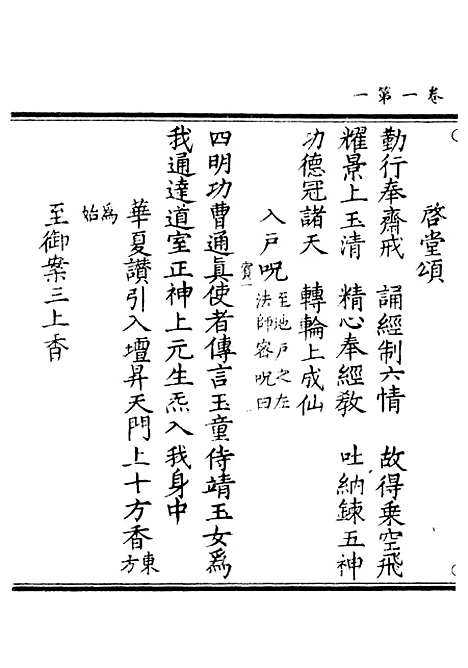 卷一第一
啓堂頌
勤行奉齋戒　誦經制六情　故得乗空飛
耀景上玉清　精心奉經教　吐納鍊五神
功德冠諸天　轉輪上成仙
入戶呪
至地戶之左
法師密呪曰
四明功曹通眞使者傳言玉童侍靖玉女爲
我通達道室正神上元生炁入我身中
華夏讚引入壇昇天門上十方香東方
爲始
至御案三上香